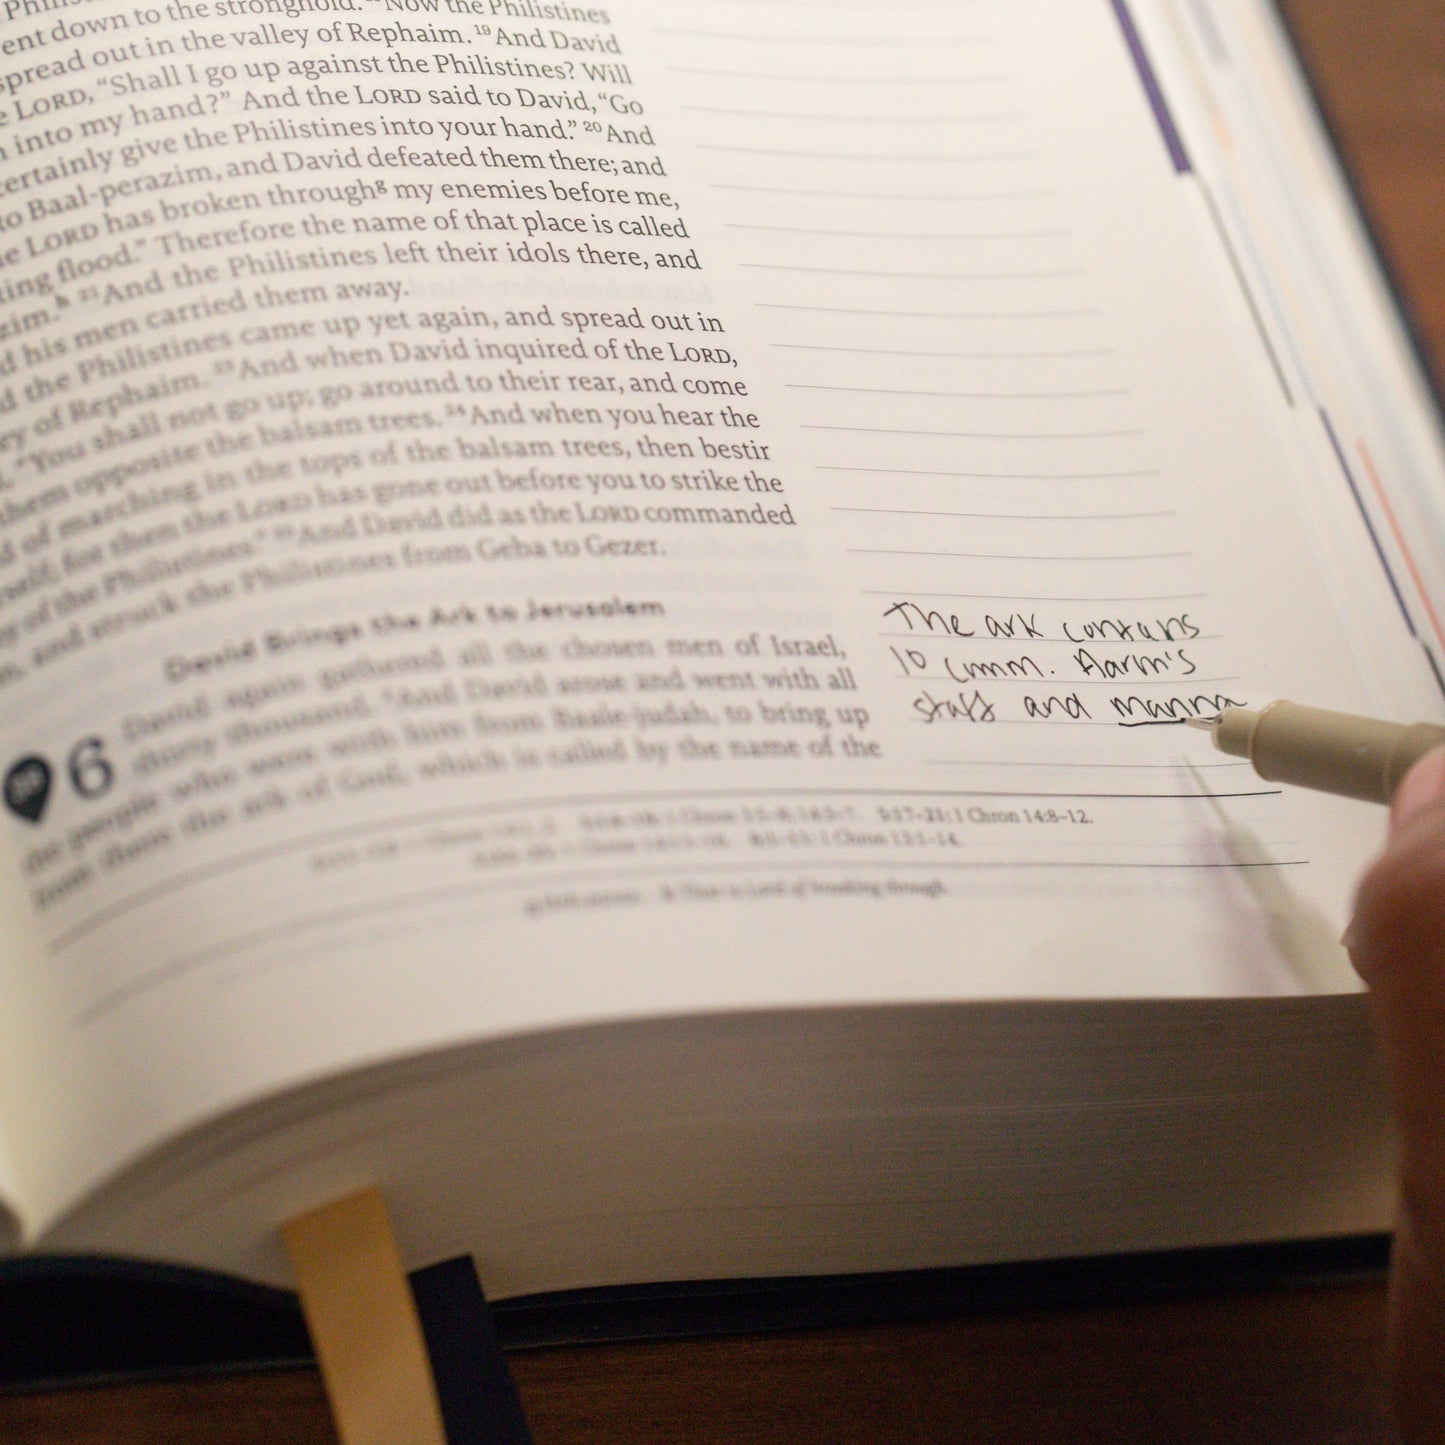 ent down to the stronghold. Now the Philistines
spread out in the valley of Rephaim. 19 And David
e LORD, “Shall I go up against the Philistines? Will
into my hand?” And the LORD said to David, “Go
certainly give the Philistines into your hand.” 20 And
to Baal-perazim, and David defeated them there; and
he LORD has broken through g my enemies before me,
ing flood.” Therefore the name of that place is called
zim. h 21 And the Philistines left their idols there, and
d his men carried them away.
d the Philistines came up yet again, and spread out in
ey of Rephaim. 23 And when David inquired of the LORD,
“You shall not go up; go around to their rear, and come
them opposite the balsam trees. 24 And when you hear the
d of marching in the tops of the balsam trees, then bestir
rself, for then the LORD has gone out before you to strike the
y of the Philistines.” 25 And David did as the LORD commanded
and struck the Philistines from Geba to Gezer.
David Brings the Ark to Jerusalem
6 David again gathered all the chosen men of Israel,
thirty thousand. 2 And David arose and went with all
the people who were with him from Baale-judah, to bring up
from there the ark of God, which is called by the name of the
The ark contains
10 Comm. Aarm's
staff and manna
5:17–21: 1 Chron 14:8–12.
1 Chron 13:1–14.
h That is Lord of breaking through.